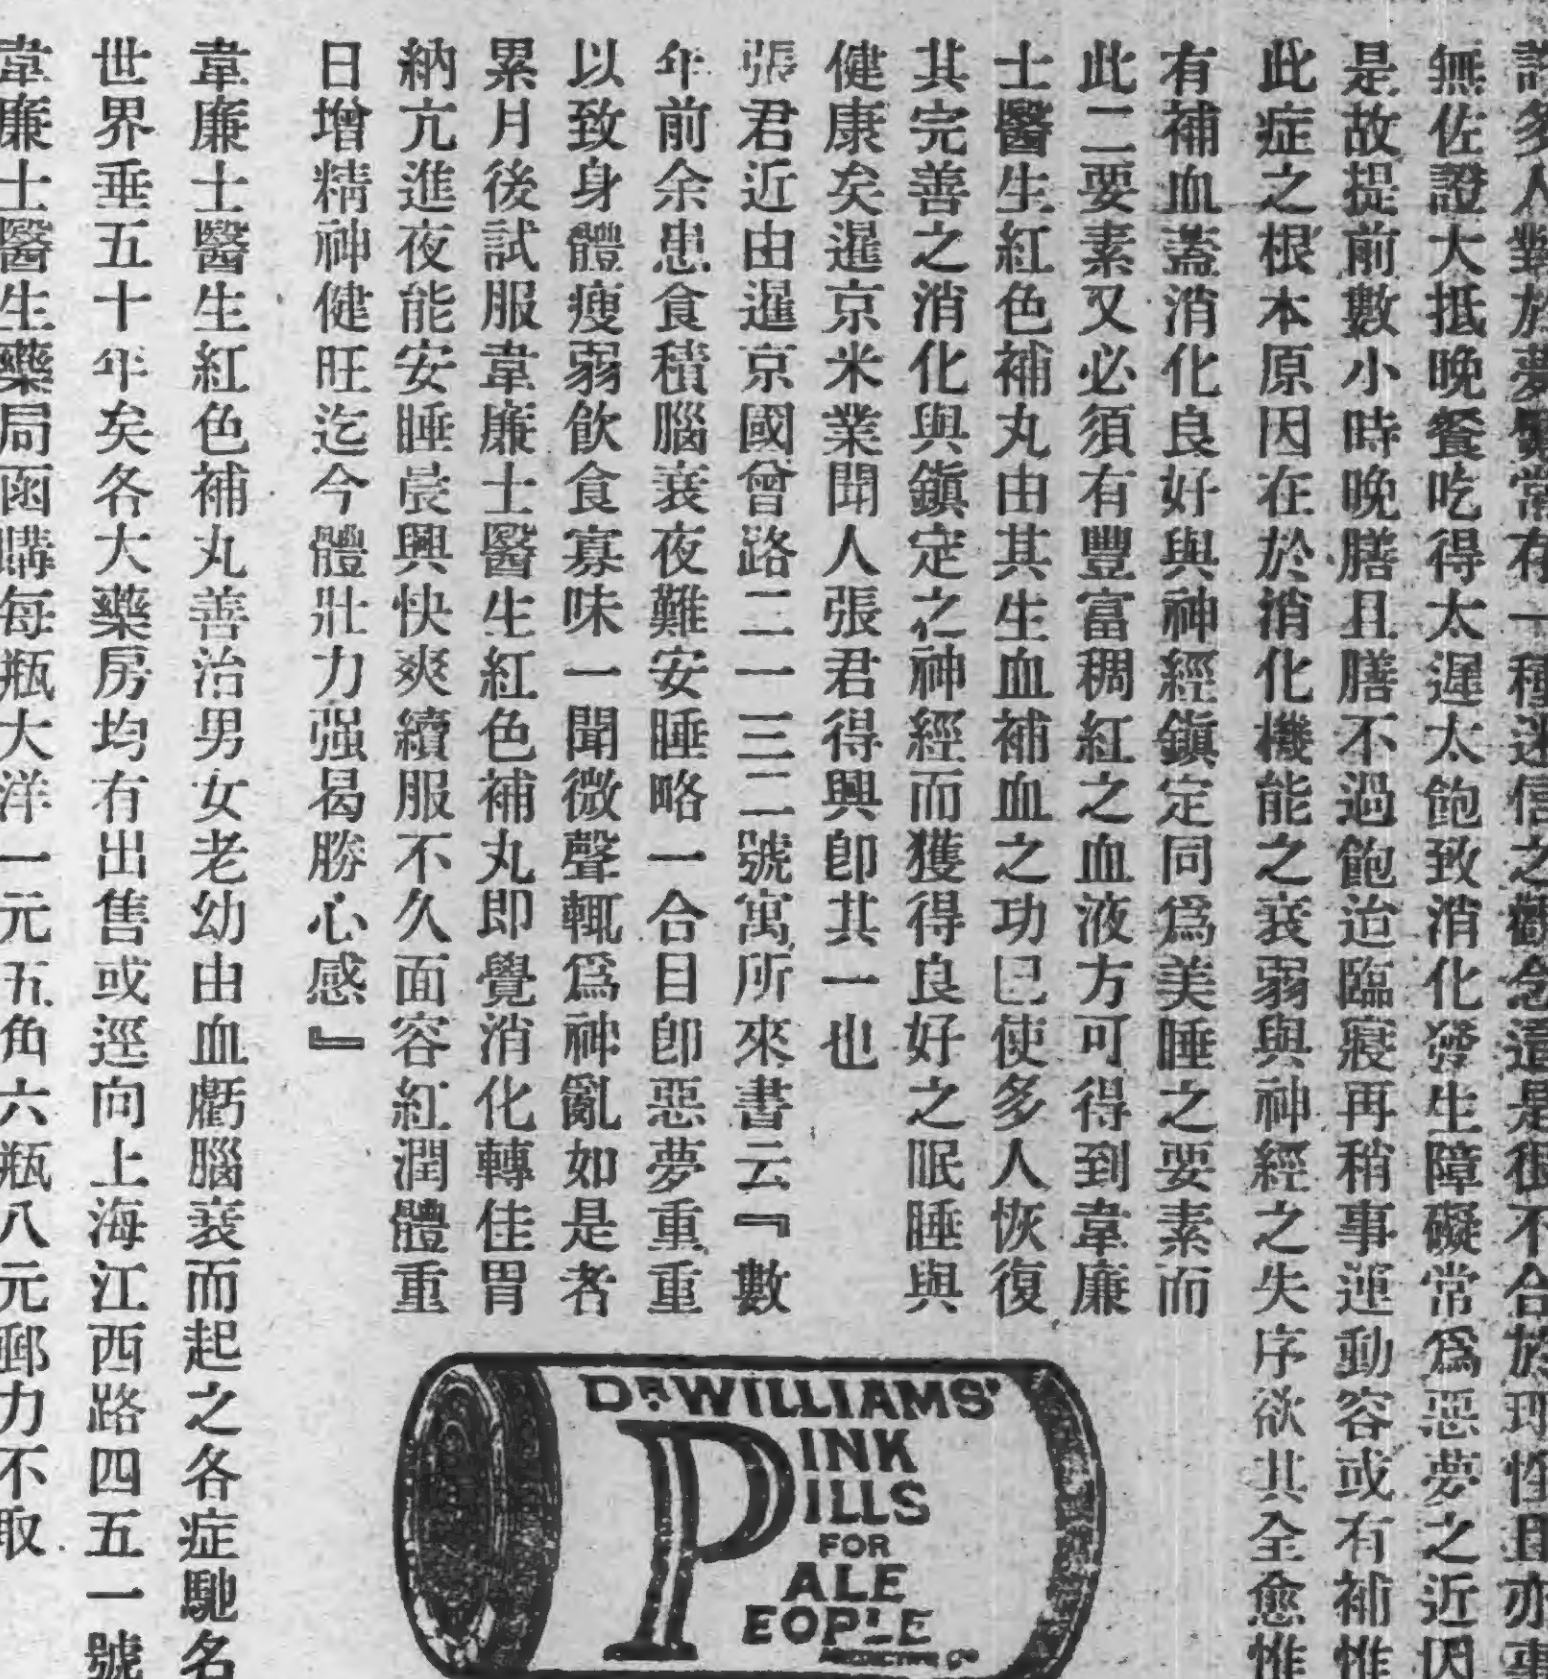 許多人對於夢魘常有一種迷信之觀念這是很不合於理性且亦事
無佐證大抵晚餐吃得太遲太飽致消化發生障礙常爲惡夢之近因
是故提前數小時晚膳且膳不過飽迨臨寢再稍事運動容或有補惟
此症之根本原因在於消化機能之衰弱與神經之失序欲其全愈惟
有補血蓋消化良好與神經鎭定同爲美睡之要素而
此二要素又必須有豐富稠紅之血液方可得到韋廉
士醫生紅色補丸由其生血補血之功已使多人恢復
其完善之消化與鎭定之神經而獲得良好之眠睡與
健康矣暹京米業聞人張君得興卽其一也
張君近由暹京國曾路二一三二號寓所來書云『數
年前余患食積腦衰夜難安睡略一合目卽惡夢重重
以致身體瘦弱飮食寡味一聞微聲輒爲神亂如是者
累月後試服韋廉士醫生紅色補丸即覺消化轉佳胃
納亢進夜能安睡晨興快爽續服不久面容紅潤體重
日增精神健旺迄今體壯力强曷勝心感』
韋廉士醫生紅色補丸善治男女老幼由血虧腦衰而起之各症馳名
世界垂五十年矣各大藥房均有出售或逕向上海江西路四五一號
韋廉士醫生藥局函購每瓶大洋一元五角六瓶八元郵力不取
DR WILLIAMS'
PINK
PILLS
FOR
PALE
PEOPLE